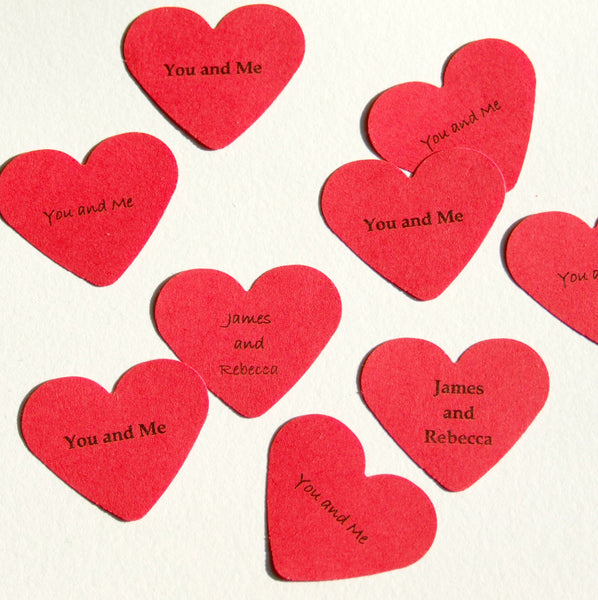 You and Me
You and Me
You and Me
You and Me
You a
James
and
Rebecca
James
and
Rebecca
You and Me
You and Me